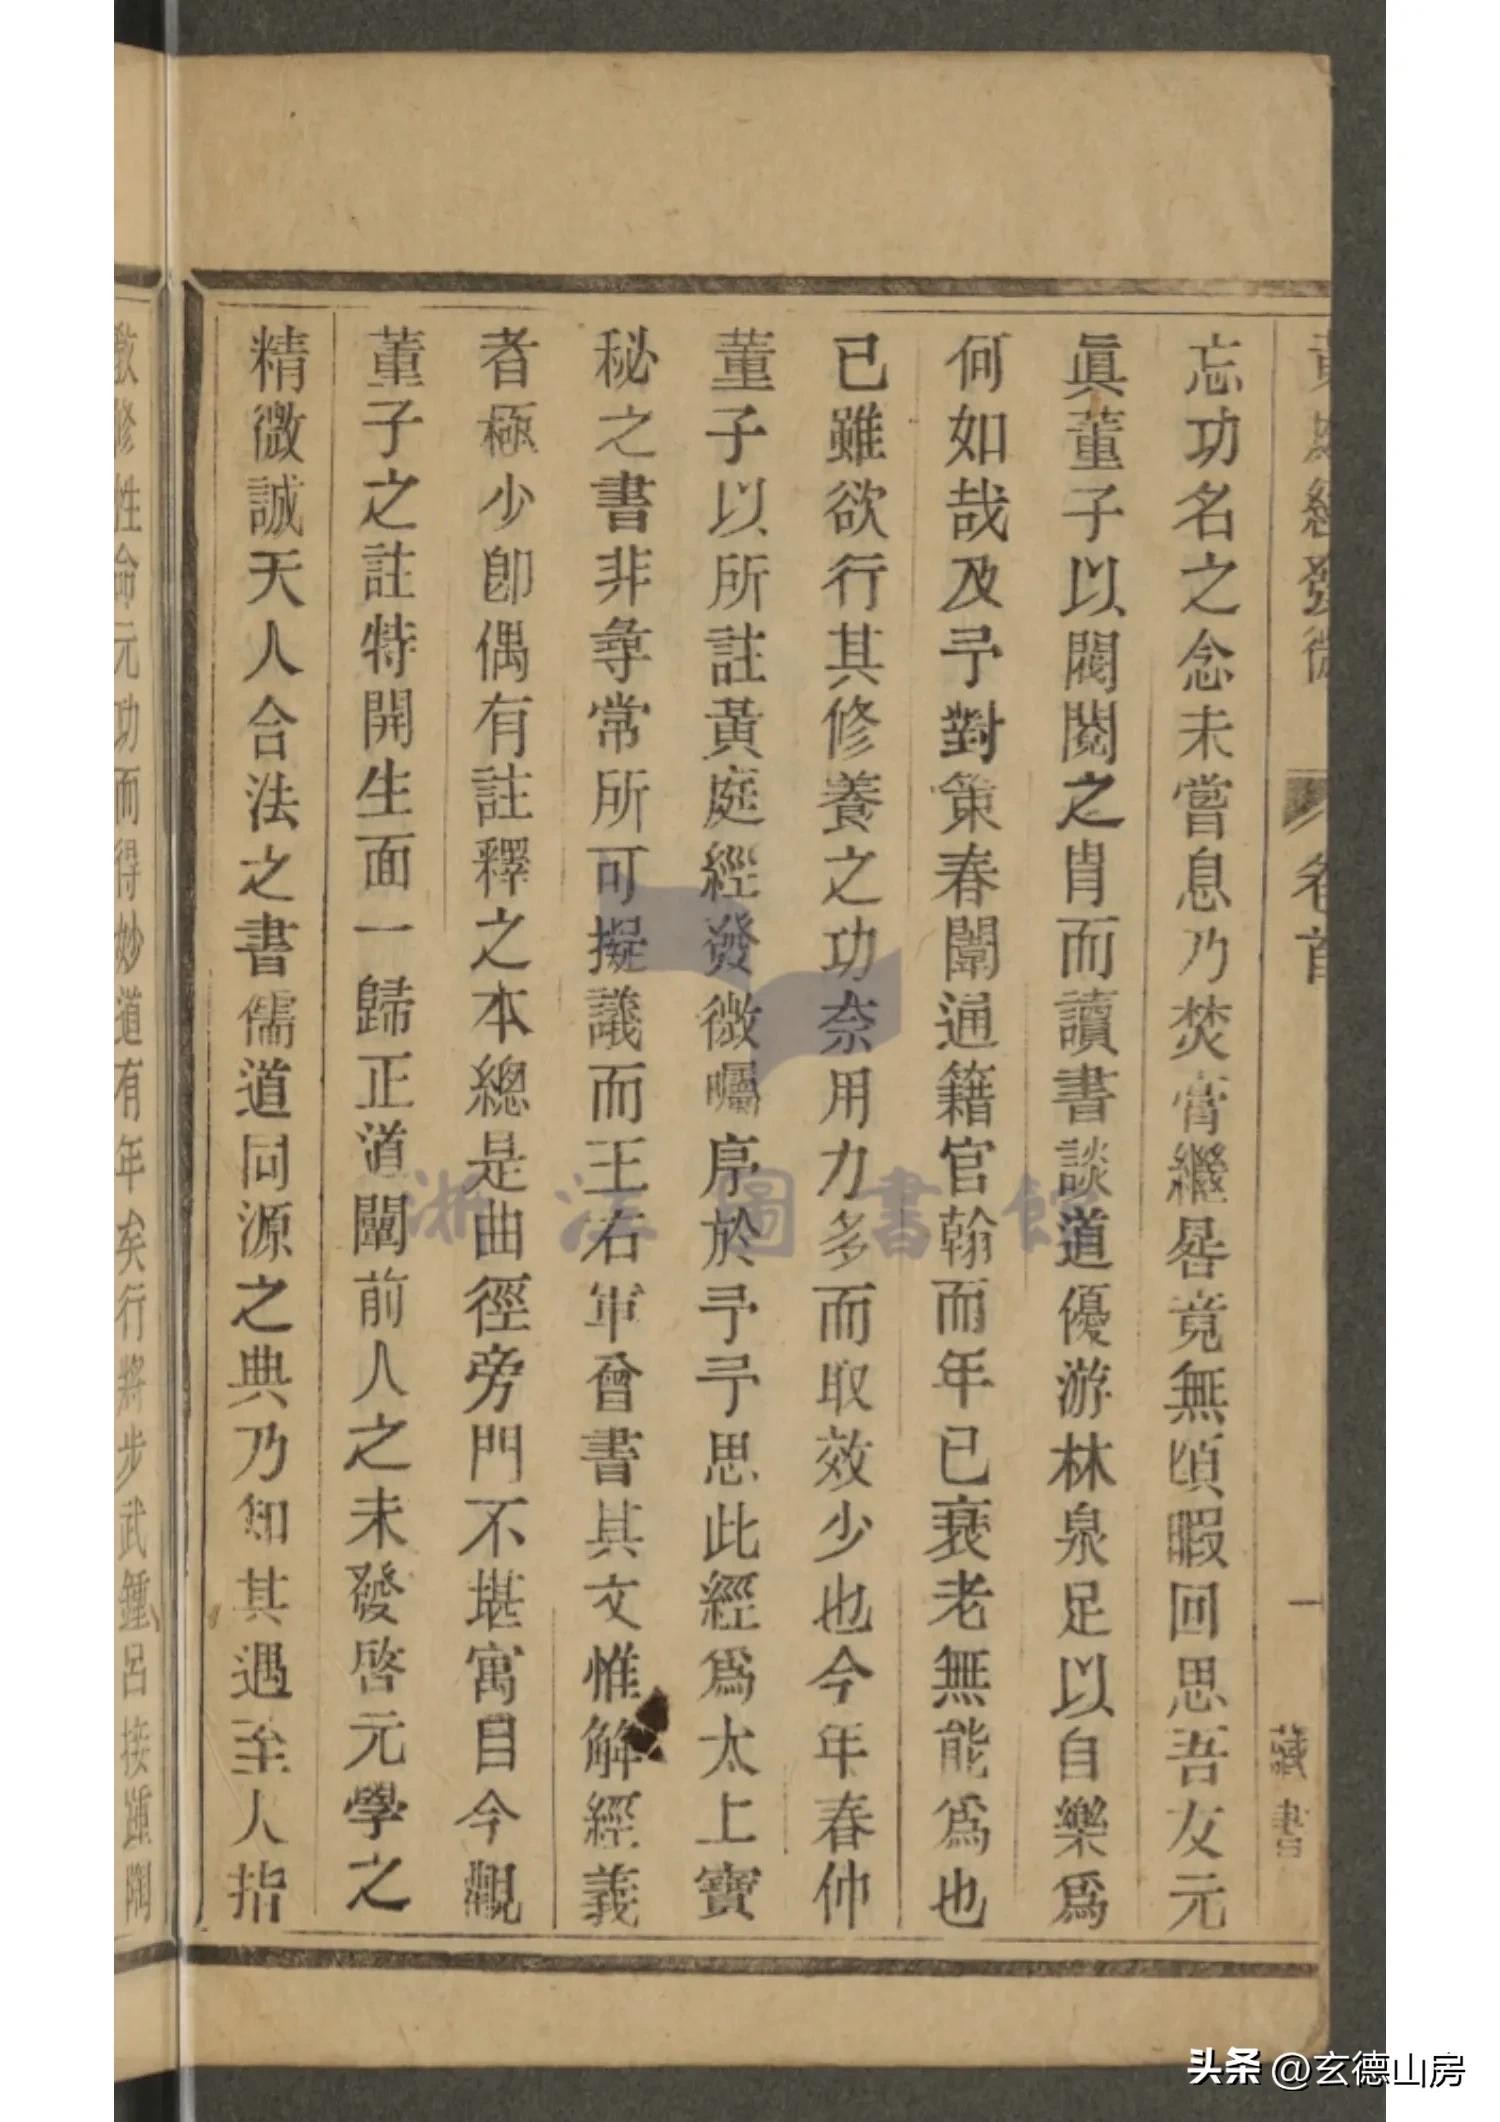 黃庭經發微 卷首 一 藏書
忘功名之念未嘗息乃焚膏繼晷竟無頃暇回思吾友元
眞董子以閥閱之胄而讀書談道優游林泉足以自樂爲
何如哉及予對策春闈通籍官翰而年已衰老無能爲也
已雖欲行其修養之功奈用力多而取效少也今年春仲
董子以所註黃庭經發微囑序於予予思此經爲太上寶
秘之書非尋常所可擬議而王右軍曾書其文惟解經義
者極少卽偶有註釋之本總是曲徑旁門不堪寓目今觀
董子之註特開生面一歸正道闡前人之未發啓元學之
精微誠天人合法之書儒道同源之典乃知其遇至人指
教修性命元功而得妙道有年矣行將步武鍾呂接踵閬
浙江圖書館
头条@玄德山房